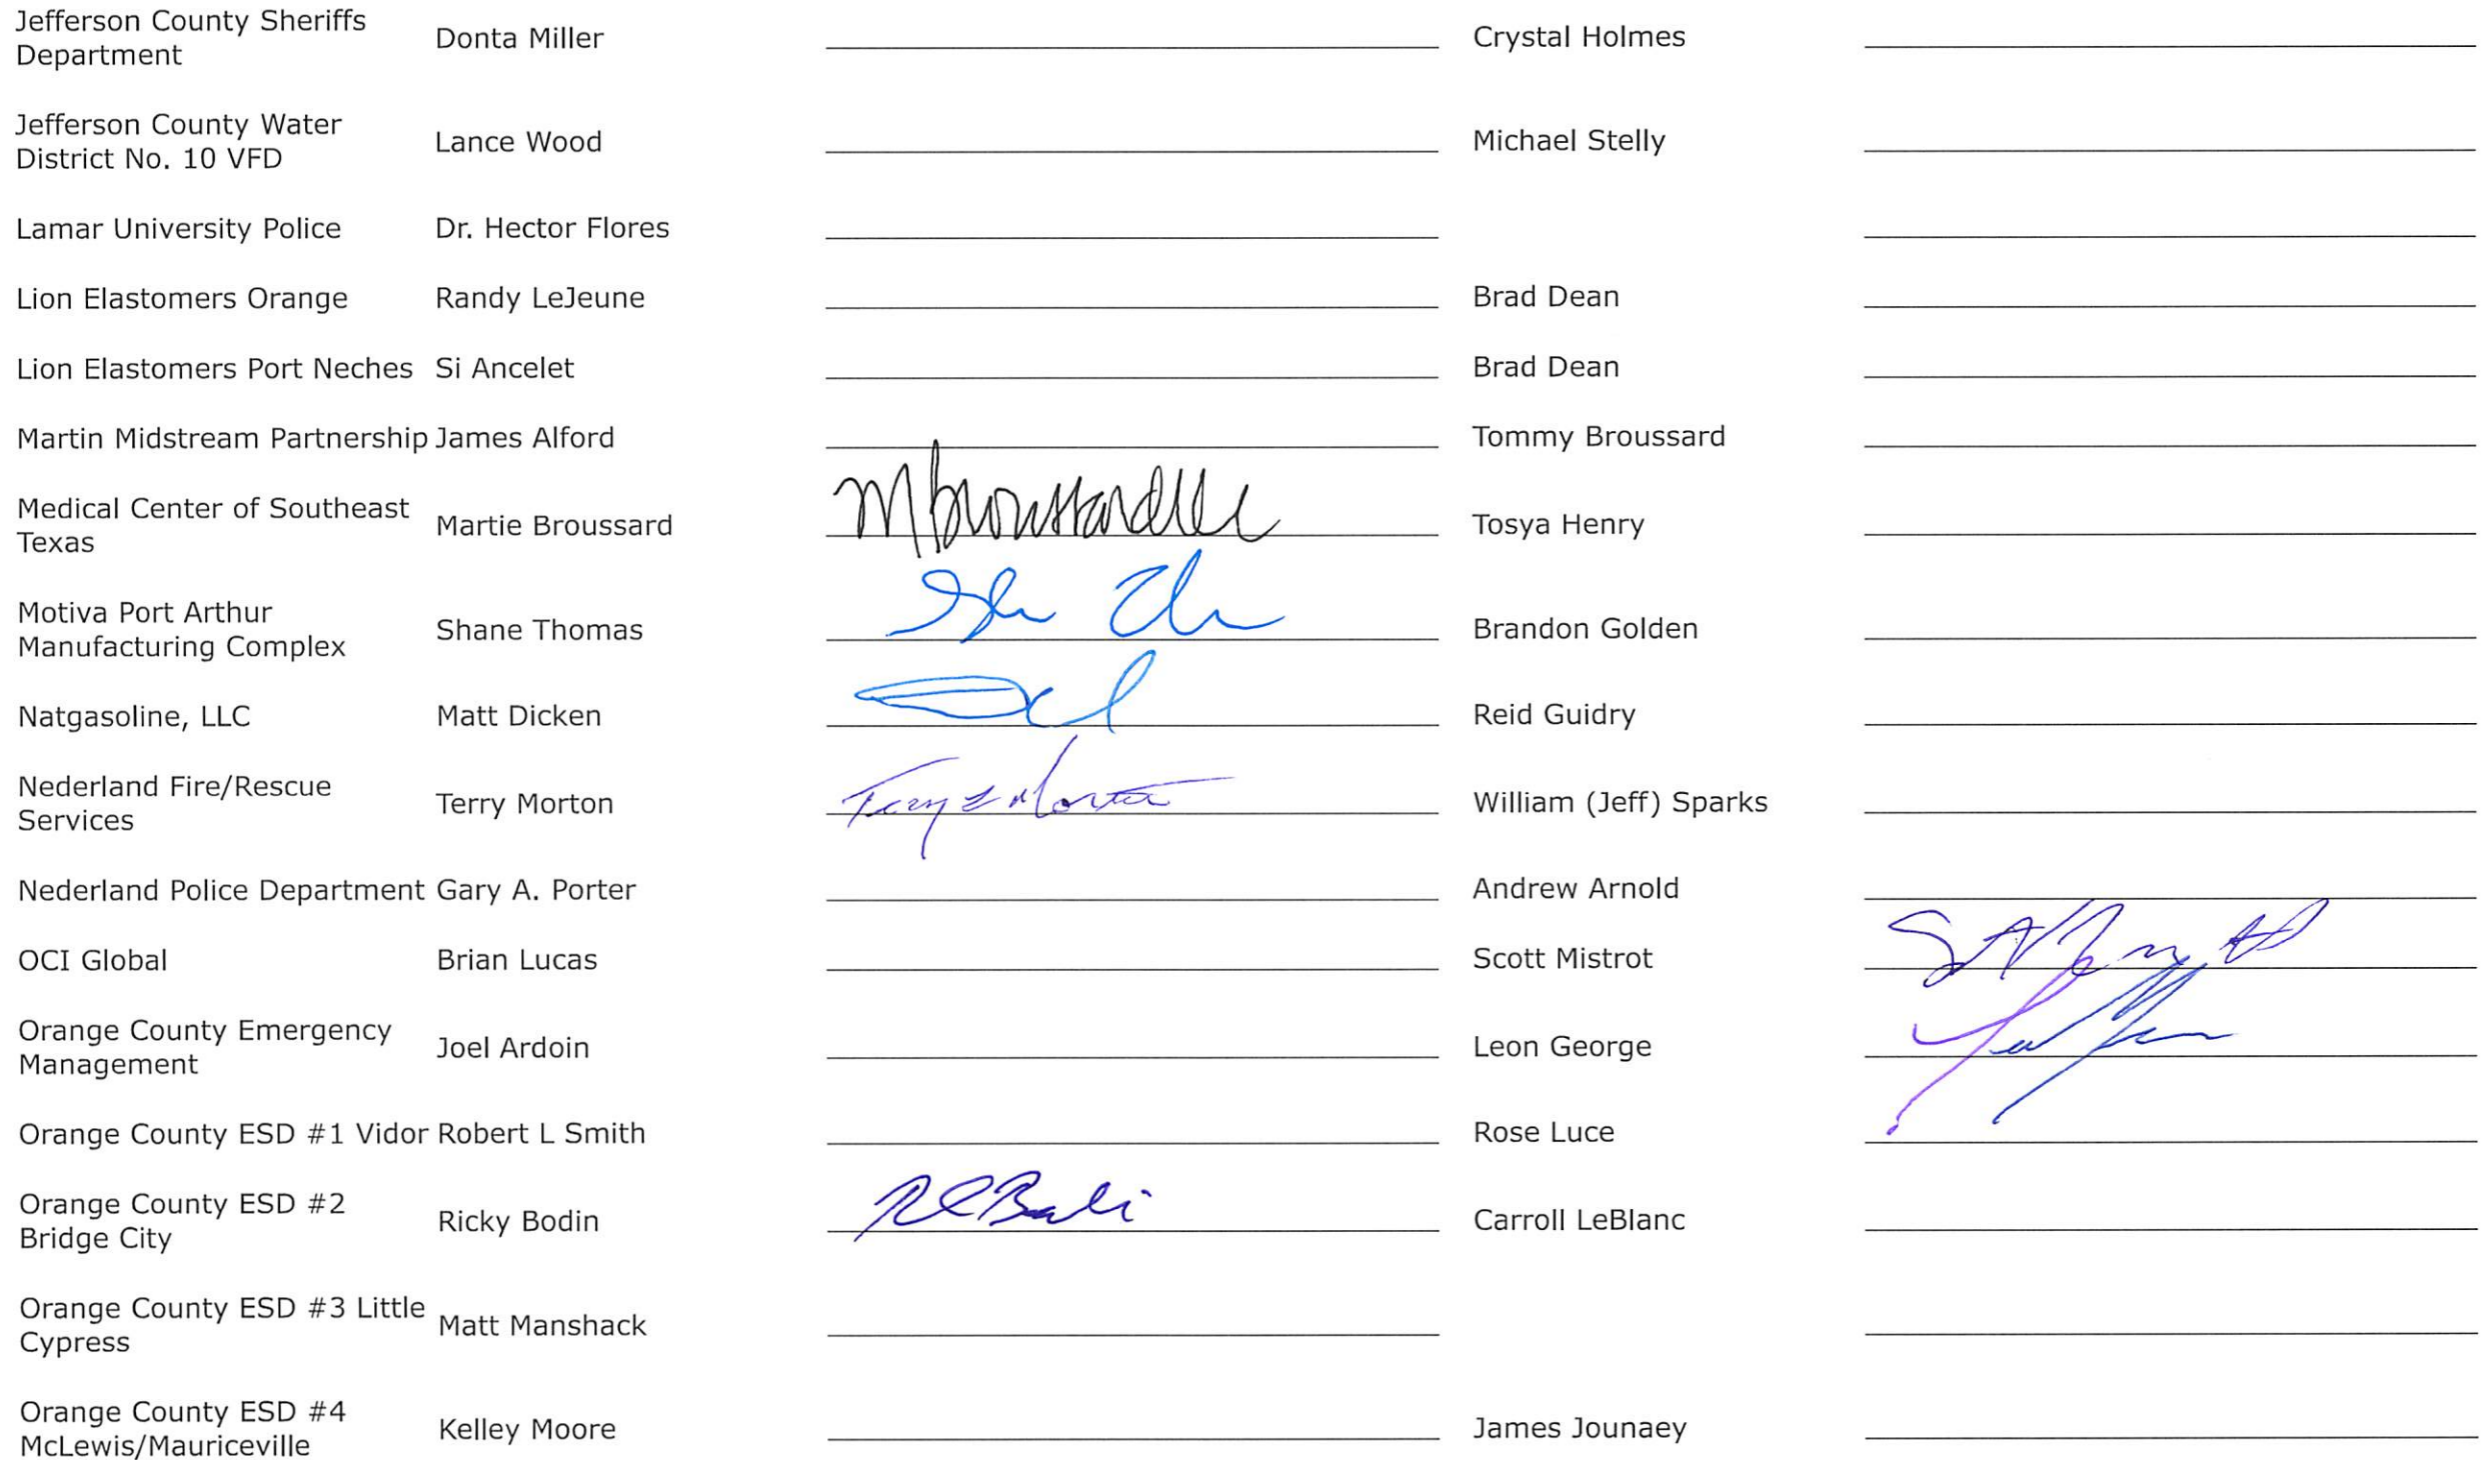 Jefferson County Sheriffs
Department
Donta Miller
Crystal Holmes
Jefferson County Water
District No. 10 VFD
Lance Wood
Michael Stelly
Lamar University Police
Dr. Hector Flores
Lion Elastomers Orange
Randy LeJeune
Brad Dean
Lion Elastomers Port Neches
Si Ancelet
Brad Dean
Martin Midstream Partnership
James Alford
Tommy Broussard
Medical Center of Southeast
Texas
Martie Broussard
Tosya Henry
Motiva Port Arthur
Manufacturing Complex
Shane Thomas
Brandon Golden
Natgasoline, LLC
Matt Dicken
Reid Guidry
Nederland Fire/Rescue
Services
Terry Morton
Terry Morton
William (Jeff) Sparks
Nederland Police Department
Gary A. Porter
Andrew Arnold
OCI Global
Brian Lucas
Scott Mistrot
Orange County Emergency
Management
Joel Ardoin
Leon George
Orange County ESD #1 Vidor
Robert L Smith
Rose Luce
Orange County ESD #2
Bridge City
Ricky Bodin
Carroll LeBlanc
Orange County ESD #3 Little
Cypress
Matt Manshack
Orange County ESD #4
McLewis/Mauriceville
Kelley Moore
James Jounaey